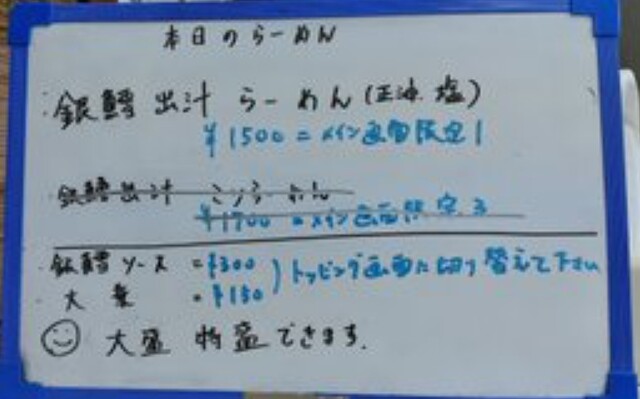 本日のらーめん
銀鱈 出汁 らーめん(正油、塩)
¥1500 = メイン画面限定1
銀鱈出汁 らーめん
¥1700 = メイン画面限定3
銀鱈ソース = ¥300
大葉 = ¥150
トッピング画面に切り替えて下さい
大盛 特盛できます。